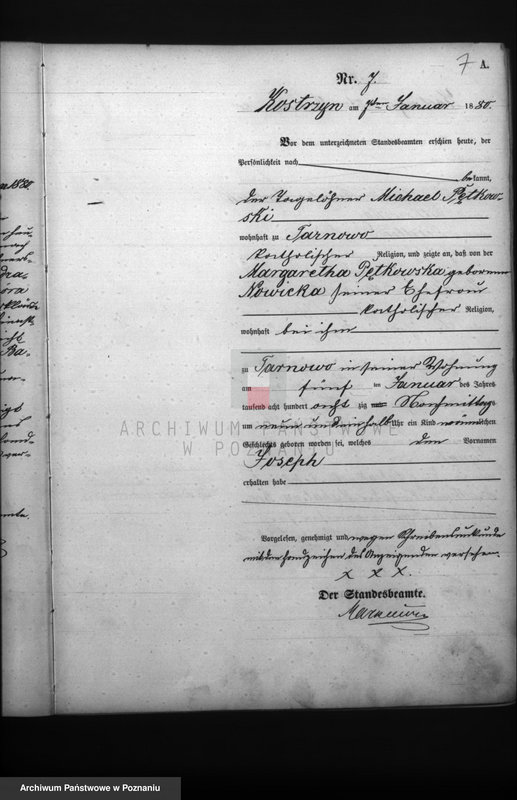 7 A.
Nr. 7.
Kostrzyn am 7ten Januar 1880.
Vor dem unterzeichneten Standesbeamten erschien heute, der
Persönlichkeit nach
bekannt,
der Tagelöhner Michael Pętkow-
ski
wohnhaft zu Tarnowo
katholischer Religion, und zeigte an, daß von der
Margaretha Pętkowska geborenen
Nowicka seiner Ehefrau
katholischer Religion,
wohnhaft bei ihm
zu Tarnowo in seiner Wohnung
am fünf ten Januar des Jahres
tausend acht hundert acht zig Nachmittags
um neun Uhr ein Kind männlichen
Geschlechts geboren worden sei, welches den Vornamen
Joseph
erhalten habe
Vorgelesen, genehmigt und wegen Schreibensunkunde
mit den Handzeichen des Anzeigenden versehen.
x x x.
Der Standesbeamte.
ARCHIWUM PAŃSTWOWE
W POZNANIU
Archiwum Państwowe w Poznaniu